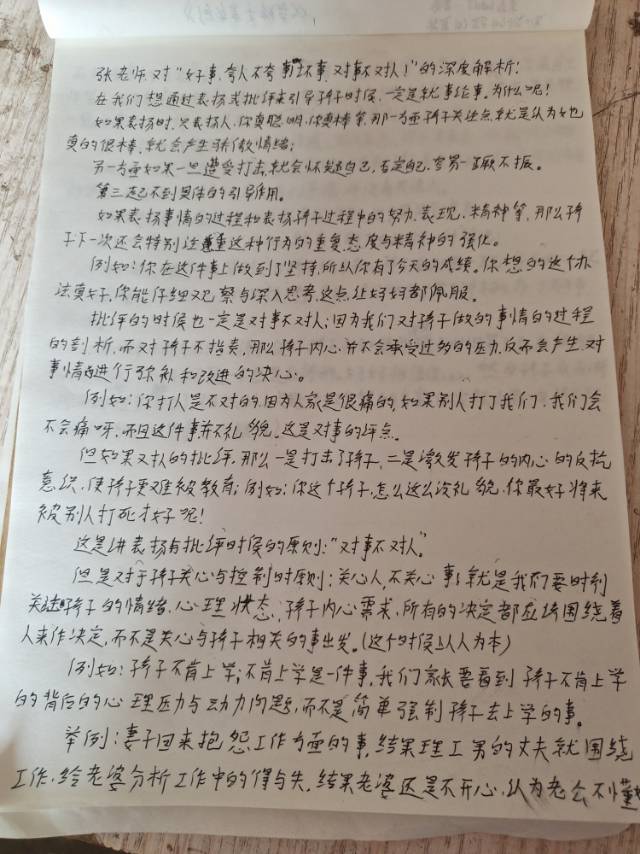 张老师对“好事,夸人不夸事,坏事,对事不对人!”的深度解析!
在我们想通过表扬或批评来引导孩子时候,一定是就事论事。为什么呢!
如果表扬时,只表扬人,你真聪明,你真棒等,那一方面孩子关注点就是认为他
真的很棒,就会产生骄傲情绪;
另一方面如果一旦遭受打击,就会怀疑自己,否定自己,容易一蹶不振。
第三起不到具体的引导作用。
如果表扬事情的过程和表扬孩子过程中的努力、表现、精神等,那么孩
子下一次还会特别注重这种行为的重复态度与精神的强化。
例如:你在这件事上做到了坚持,所以你有了今天的成绩。你想的这个办
法真好,你能仔细观察与深入思考,这点让妈妈都佩服。
批评的时候也一定是对事不对人;因为我们对孩子做的事情的过程
的剖析,而对孩子不指责,那么孩子内心并不会承受过多的压力,反而会产生对
事情进行弥补和改进的决心。
例如:你打人是不对的,因为人家是很痛的,如果别人打了我们,我们会
不会痛呀,而且这件事并不礼貌。这是对事的评点。
但如果对人的批评,那么一是打击了孩子,二是激发孩子的内心的反抗
意识,使孩子更难被教育;例如:你这个孩子,怎么这么没礼貌,你最好将来
被别人打死才好呢!
这是讲表扬有批评时候的原则:“对事不对人”。
但是对于孩子关心与控制时原则:关心人,不关心事!就是我们要时刻
关注孩子的情绪,心理状态,孩子内心需求,所有的决定都应该围绕着
人来作决定,而不是关心与孩子相关的事出发。(这个时候以人为本)
例如:孩子不肯上学;不肯上学是一件事,我们家长要看到孩子不肯上学
的背后的心理压力与动力问题,而不是简单强制孩子去上学的事。
举例:妻子回来抱怨工作方面的事,结果理工男的丈夫就围绕
工作,给老婆分析工作中的得与失,结果老婆还是不开心,认为老公不懂